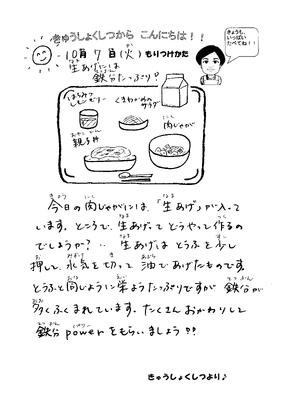 きゅうしょくしつから こんにちは!!
きょうも、
いっぱい
たべてね!!
10月7日(火)もりつけかた
生あげには
鉄分たっぷり?
はちみつ
レモンゼリー
くきわかめの
サラダ
肉じゃが
親子丼
今日の肉じゃがには、「生あげ」が入って
います。ところで、生あげってどうやって作るの
でしょうか?‥ 生あげはとうふを少し
押して、水気を切って油であげたものです。
とうふと同じように栄ようたっぷりですが鉄分が
多くふくまれています。たくさんおかわりして
鉄分powerをもらいましょう??
きゅうしょくしつより♪